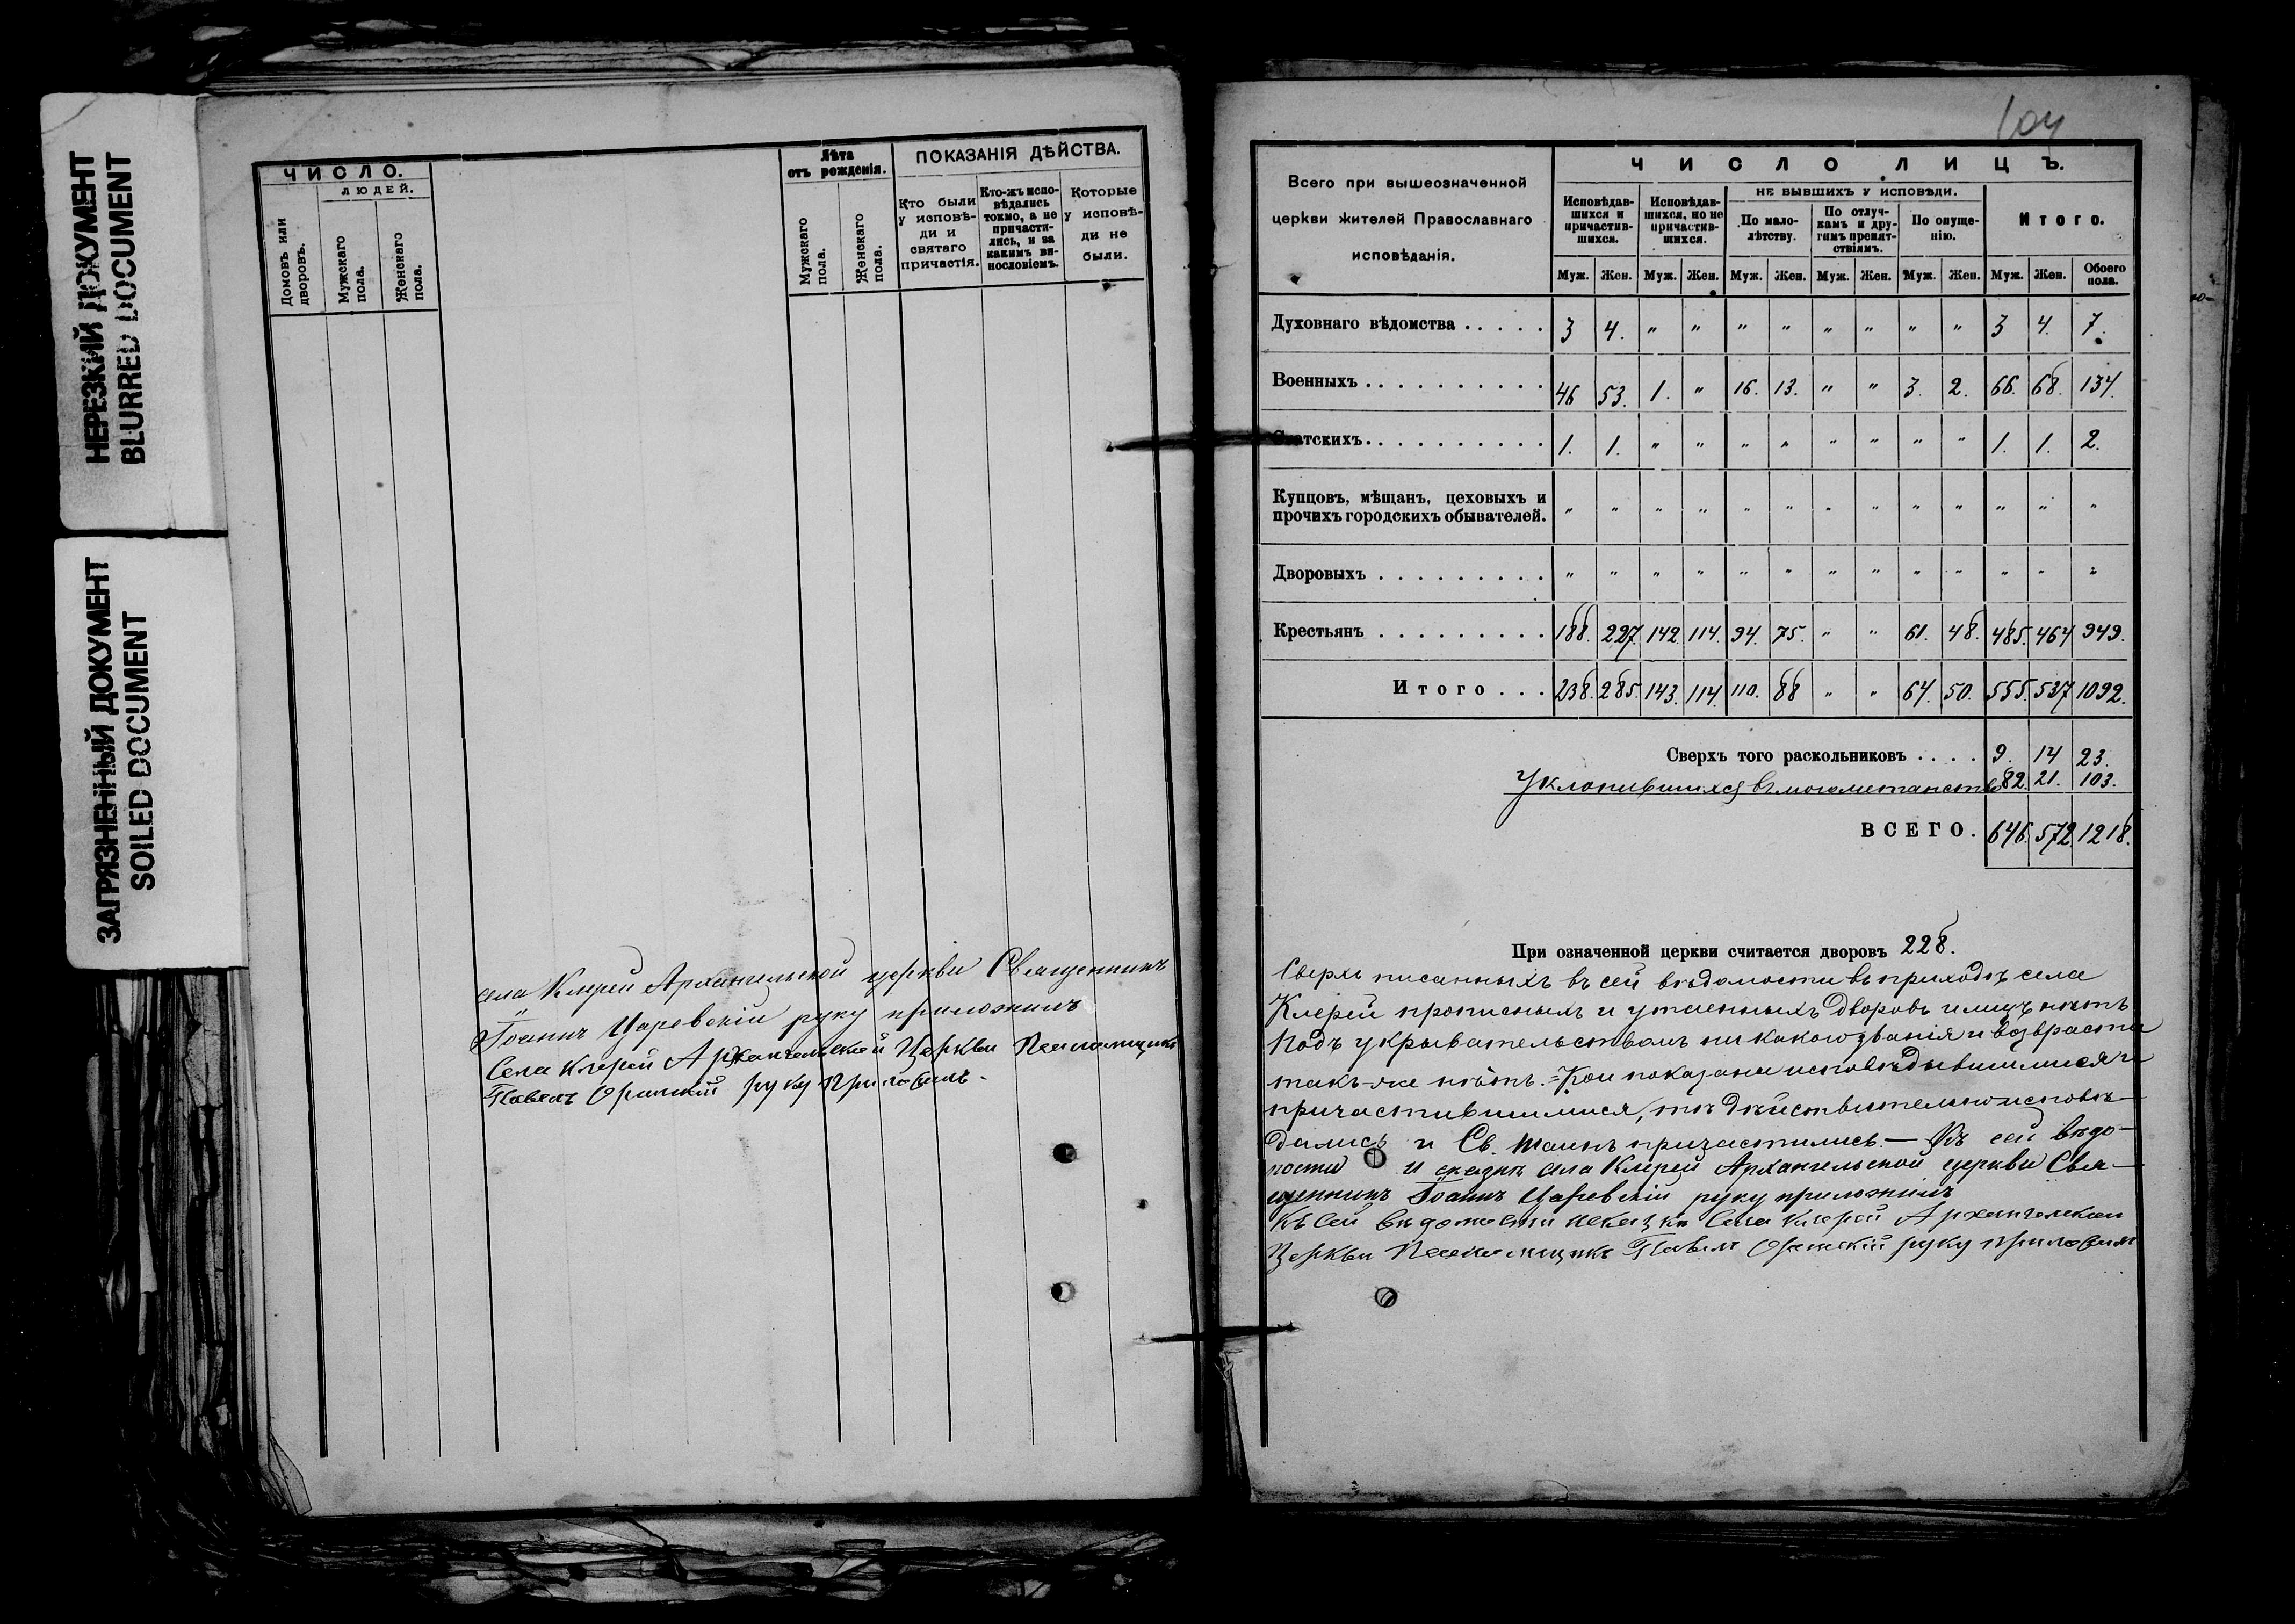 НЕРЕЗКИЙ ДОКУМЕНТ
BLURRED DOCUMENT
ЗАГРЯЗНЕННЫЙ ДОКУМЕНТ
SOILED DOCUMENT
ЧИСЛО.
ЛЮДЕЙ.
Домовъ или дворовъ.
Мужскаго пола.
Женскаго пола.
Лѣта отъ рожденія.
Мужскаго пола.
Женскаго пола.
ПОКАЗАНІЯ ДѢЙСТВА.
Кто были у исповѣди и святаго причастія.
Кто-жъ исповѣдались токмо, а не причастились, и за какимъ винословіемъ.
Которые у исповѣди не были.
села Клерей Архангельской церкви Священникъ
Іоаннъ Царевскій руку приложилъ
Села Клерей Архангельской Церкви Псаломщикъ
Павелъ руку приложилъ
104
Всего при вышеозначенной церкви жителей Православнаго исповѣданія.
ЧИСЛО ЛИЦЪ.
Исповѣдавшихся и причастившихся.
Исповѣдавшихся, но не причастившихся.
НЕ БЫВШИХЪ У ИСПОВѢДИ.
По малолѣтству.
По отлучкамъ и другимъ препятствіямъ.
По опущенію.
Итого.
Муж. Жен. Муж. Жен. Муж. Жен. Муж. Жен. Муж. Жен. Муж. Жен. Обоего пола.
Духовнаго вѣдомства . . . . . 3 4. " " " " " " " " 3 4. 7.
Военныхъ . . . . . . . . . . 46 53. 1. " 16. 13. " " 3. 2. 66. 68. 134.
Статскихъ . . . . . . . . . . 1. 1. " " " " " " " " 1. 1. 2.
Купцовъ, мѣщанъ, цеховыхъ и
прочихъ городскихъ обывателей. " " " " " " " " " " " " "
Дворовыхъ . . . . . . . . . " " " " " " " " " " " " "
Крестьянъ . . . . . . . . . 188. 227. 142. 114. 94. 75. " " 61. 48. 485. 464 949.
Итого . . . 238. 285. 143. 114. 110. 88 " " 64. 50. 555. 537 1092.
Сверхъ того раскольниковъ . . . . 9. 14 23.
Уклонившихся въ могометанство 82. 21. 103.
ВСЕГО. 646. 572. 1218.
При означенной церкви считается дворовъ 228.
Сверхъ писанныхъ въ сей вѣдомости въ приходѣ села
Клерей прописныхъ и утаенныхъ дворовъ и лицъ нѣтъ
Подъ укрывательствомъ ни какого званія и возраста
такъ-же нѣтъ. = Кои показаны исповѣдывшимися и
причастившимися, тѣ дѣйствительно исповѣ-
дались и Св. Таинъ причастились. — Къ сей вѣдо-
мости и сказкѣ села Клерей Архангельской церкви Свя-
щенникъ Іоаннъ Царевскій руку приложилъ
Къ сей вѣдомости и сказки Села Клерей Архангелской
Церкви Псаломщикъ Павелъ руку приложилъ